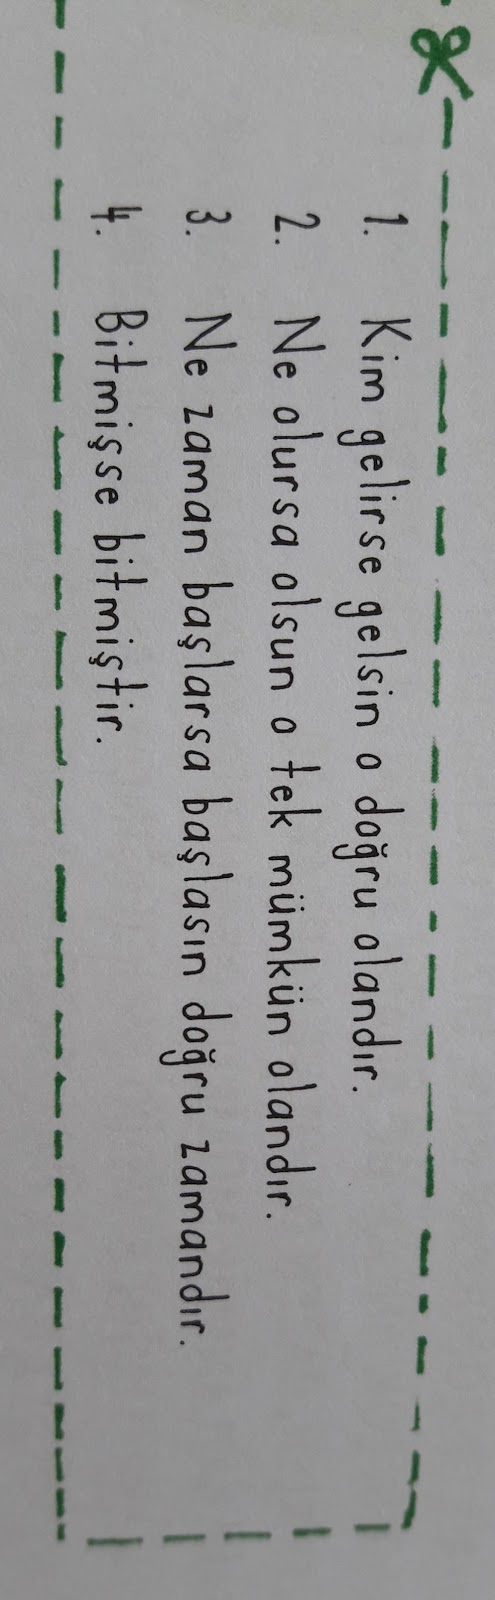 1. Kim gelirse gelsin o doğru olandır.
2. Ne olursa olsun o tek mümkün olandır.
3. Ne zaman başlarsa başlasın doğru zamandır.
4. Bitmişse bitmiştir.